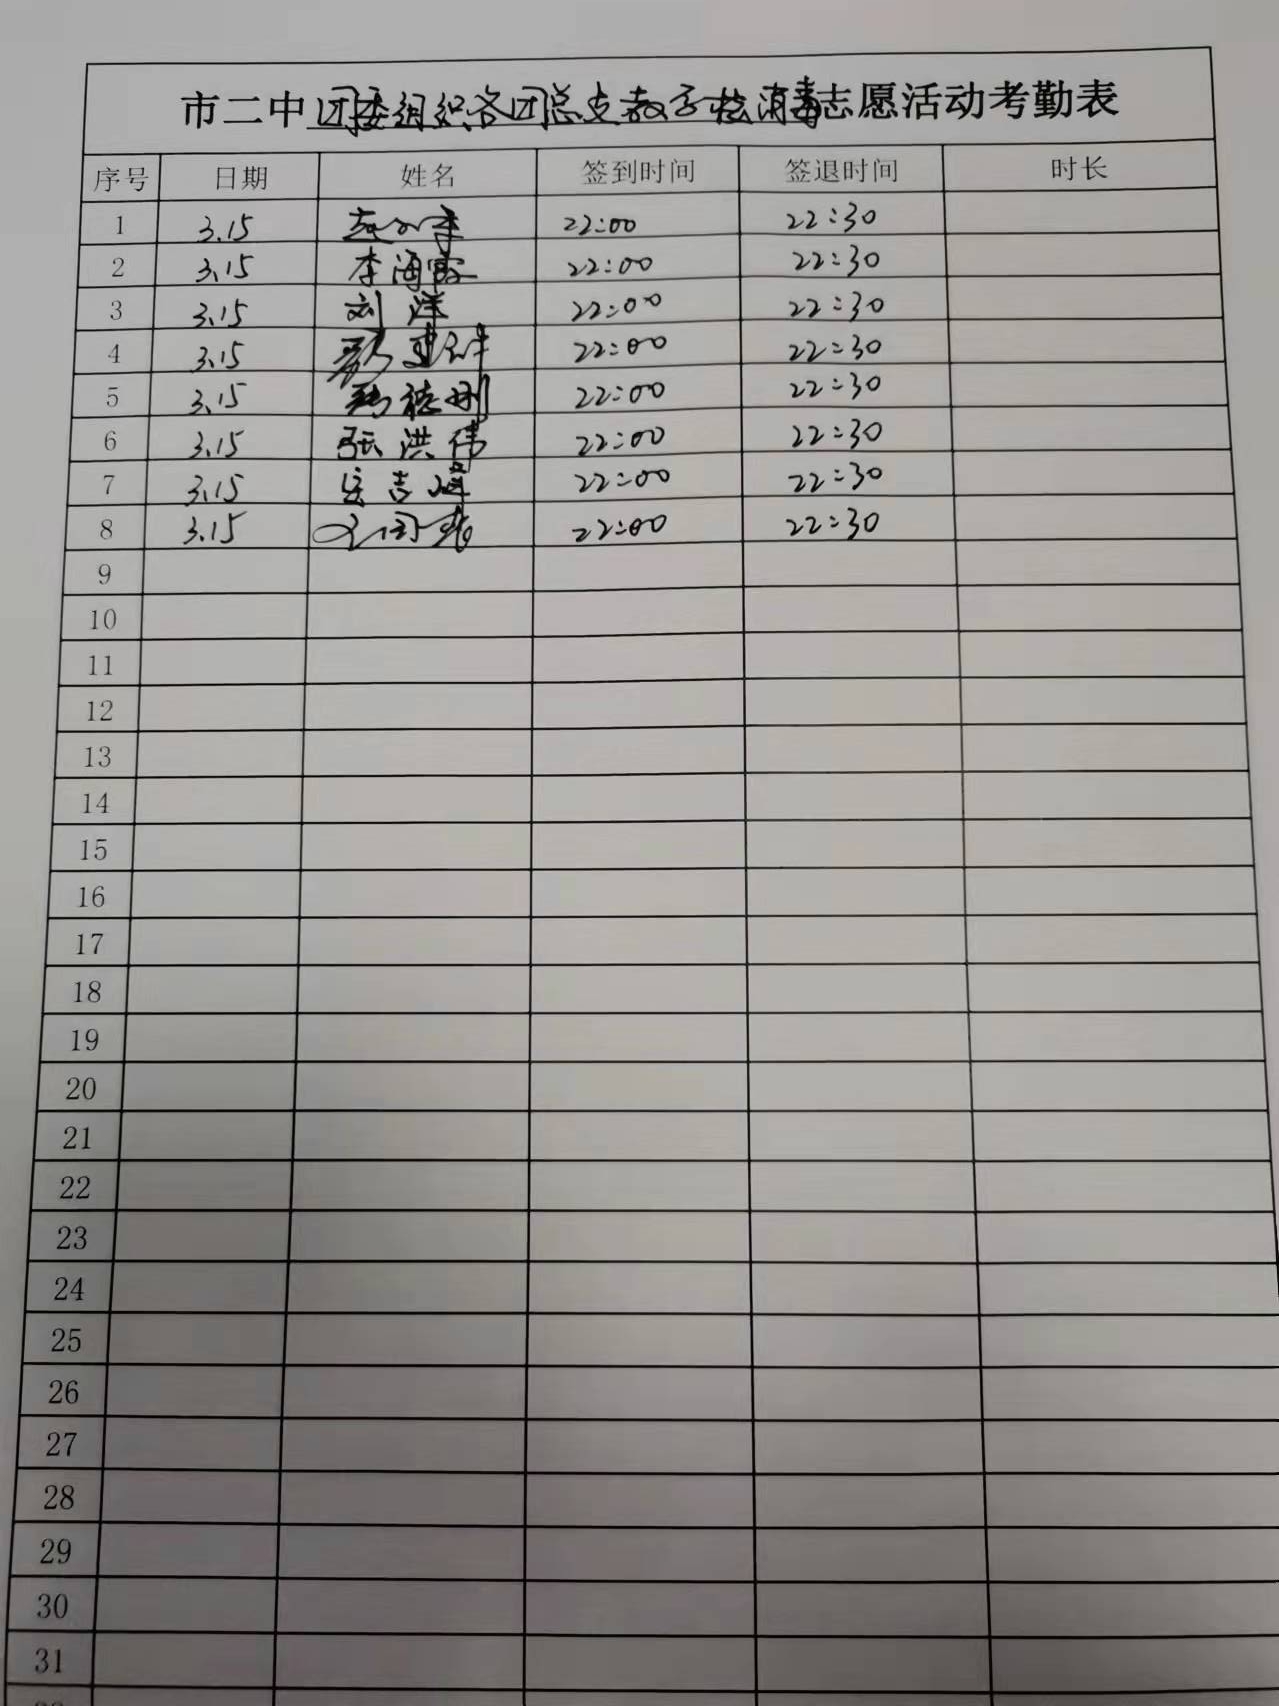 市二中团委组织各团总支教学楼消毒志愿活动考勤表
序号 日期 姓名 签到时间 签退时间 时长
1 3.15 22:00 22:30
2 3.15 李海霞 22:00 22:30
3 3.15 刘洋 22:00 22:30
4 3.15 22:00 22:30
5 3.15 22:00 22:30
6 3.15 张洪伟 22:00 22:30
7 3.15 22:00 22:30
8 3.15 22:00 22:30
9
10
11
12
13
14
15
16
17
18
19
20
21
22
23
24
25
26
27
28
29
30
31